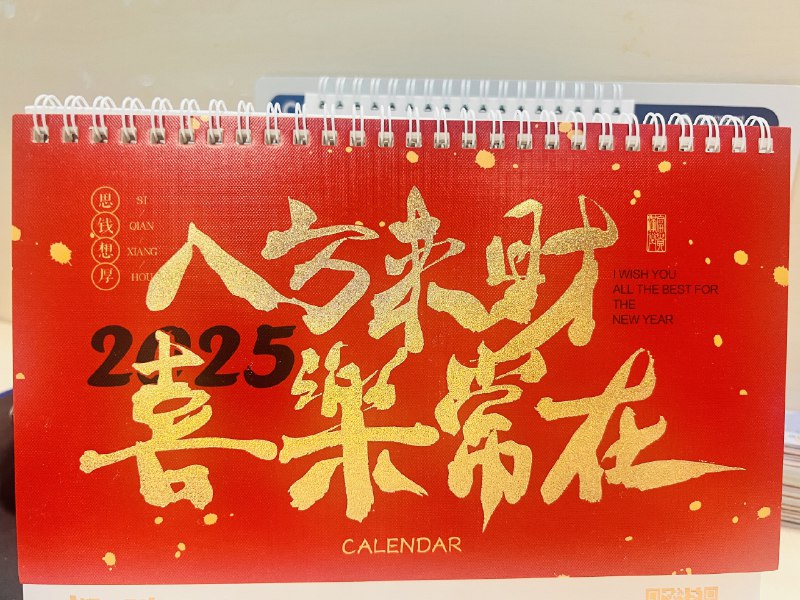 思 SI
钱 QIAN
想 XIANG
厚 HOU
八方来财
2025
喜樂常在
I WISH YOU
ALL THE BEST FOR
THE
NEW YEAR
CALENDAR